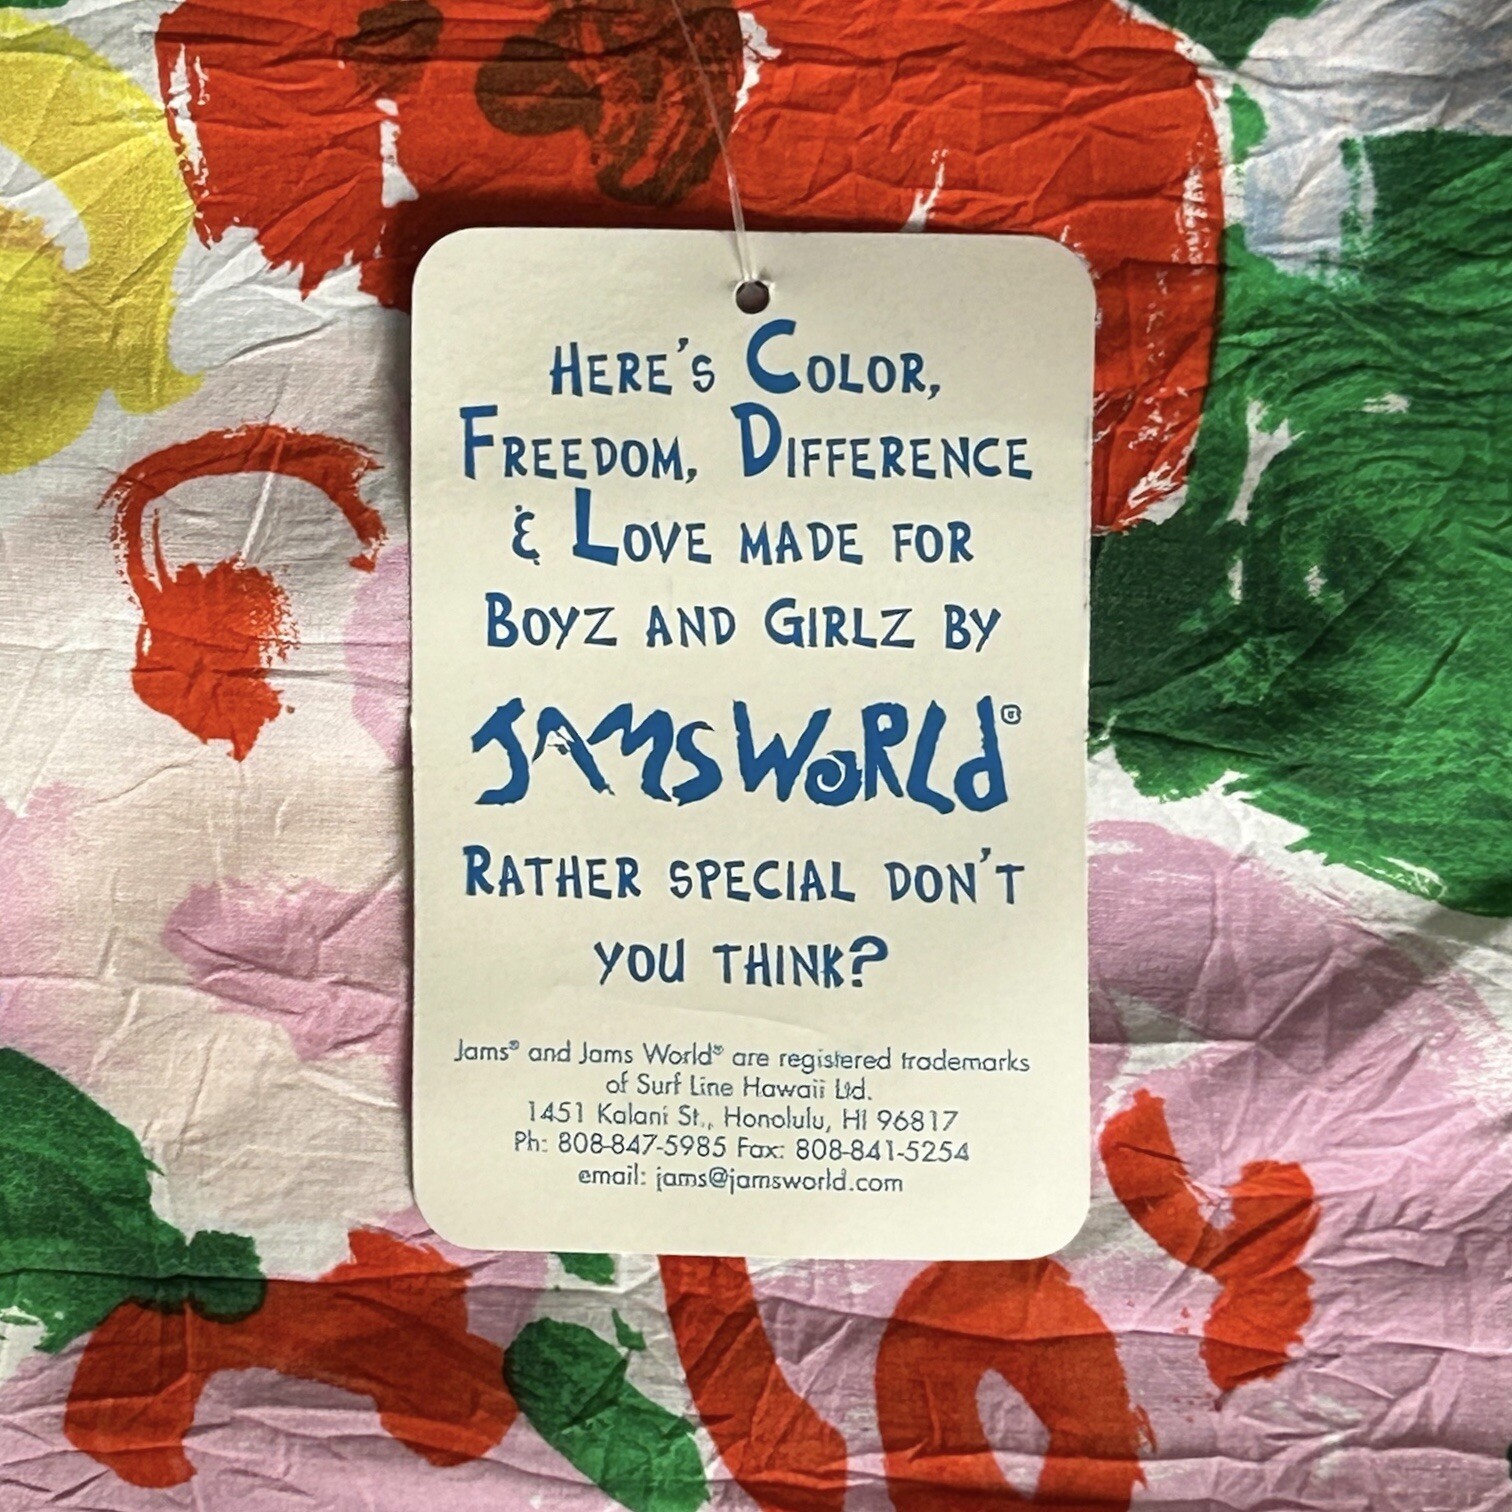 HERE'S COLOR,
FREEDOM, DIFFERENCE
& LOVE MADE FOR
BOYZ AND GIRLZ BY
JAMS WORLD®
RATHER SPECIAL DON'T
YOU THINK?
Jams® and Jams World® are registered trademarks
of Surf Line Hawaii Ltd.
1451 Kalani St., Honolulu, HI 96817
Ph: 808-847-5985 Fax: 808-841-5254
email: jams@jamsworld.com